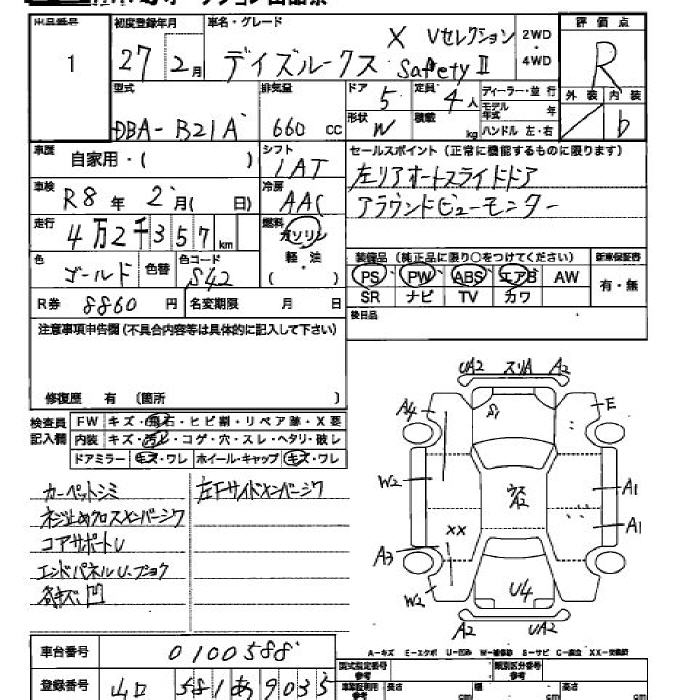 出品番号 初度登録年月 車名・グレード 評価点
1 27年2月 デイズルークス X Vセレクション Safety II 2WD・4WD R
型式 排気量 ドア 定員 ディーラー・並行 外装 内装
DBA-B21A 660 cc 5 4人 モデル年式 年 b
形状 W 積載 kg ハンドル 左・右
車歴 自家用・( ) シフト 1AT セールスポイント(正常に機能するものに限ります)
車検 R8年2月( 日) 冷房 AAC 左リアオートスライドドア
走行 4万2千357km 燃料 ガソリン アラウンドビューモニター
色 ゴールド 色替 色コード S42 軽・油 ( )
装備品(純正品に限り○をつけてください) 新車保証書
PS PW ABS エアB AW 有・無
SR ナビ TV カワ
R券 8860円 名変期限 月 日 後日品
注意事項申告欄(不具合内容等は具体的に記入して下さい)
修復歴 有 (箇所 )
検査員記入欄 FW キズ・飛石・ヒビ割・リペア跡・X要
内装 キズ・汚れ・コゲ・穴・スレ・ヘタリ・破レ
ドアミラー キズ・ワレ ホイール・キャップ キズ・ワレ
カーペットシミ 左Fサイドメンバーシワ
ネジ止めクロスメンバーシワ
コアサポートU
エンドパネルU、
各キズ、凹
UA2 スリA A2
A4 S1 E
W2 ウスA2 A1
XX A1
A3
W2 U4
A2 UA2
A-キズ E-エクボ U-凹み W-補修跡 S-サビ C-腐食 XX-交換済
車台番号 0100588
登録番号 山口 581 あ 9035
型式指定番号 類別区分番号
長さ cm 幅 cm 高さ cm